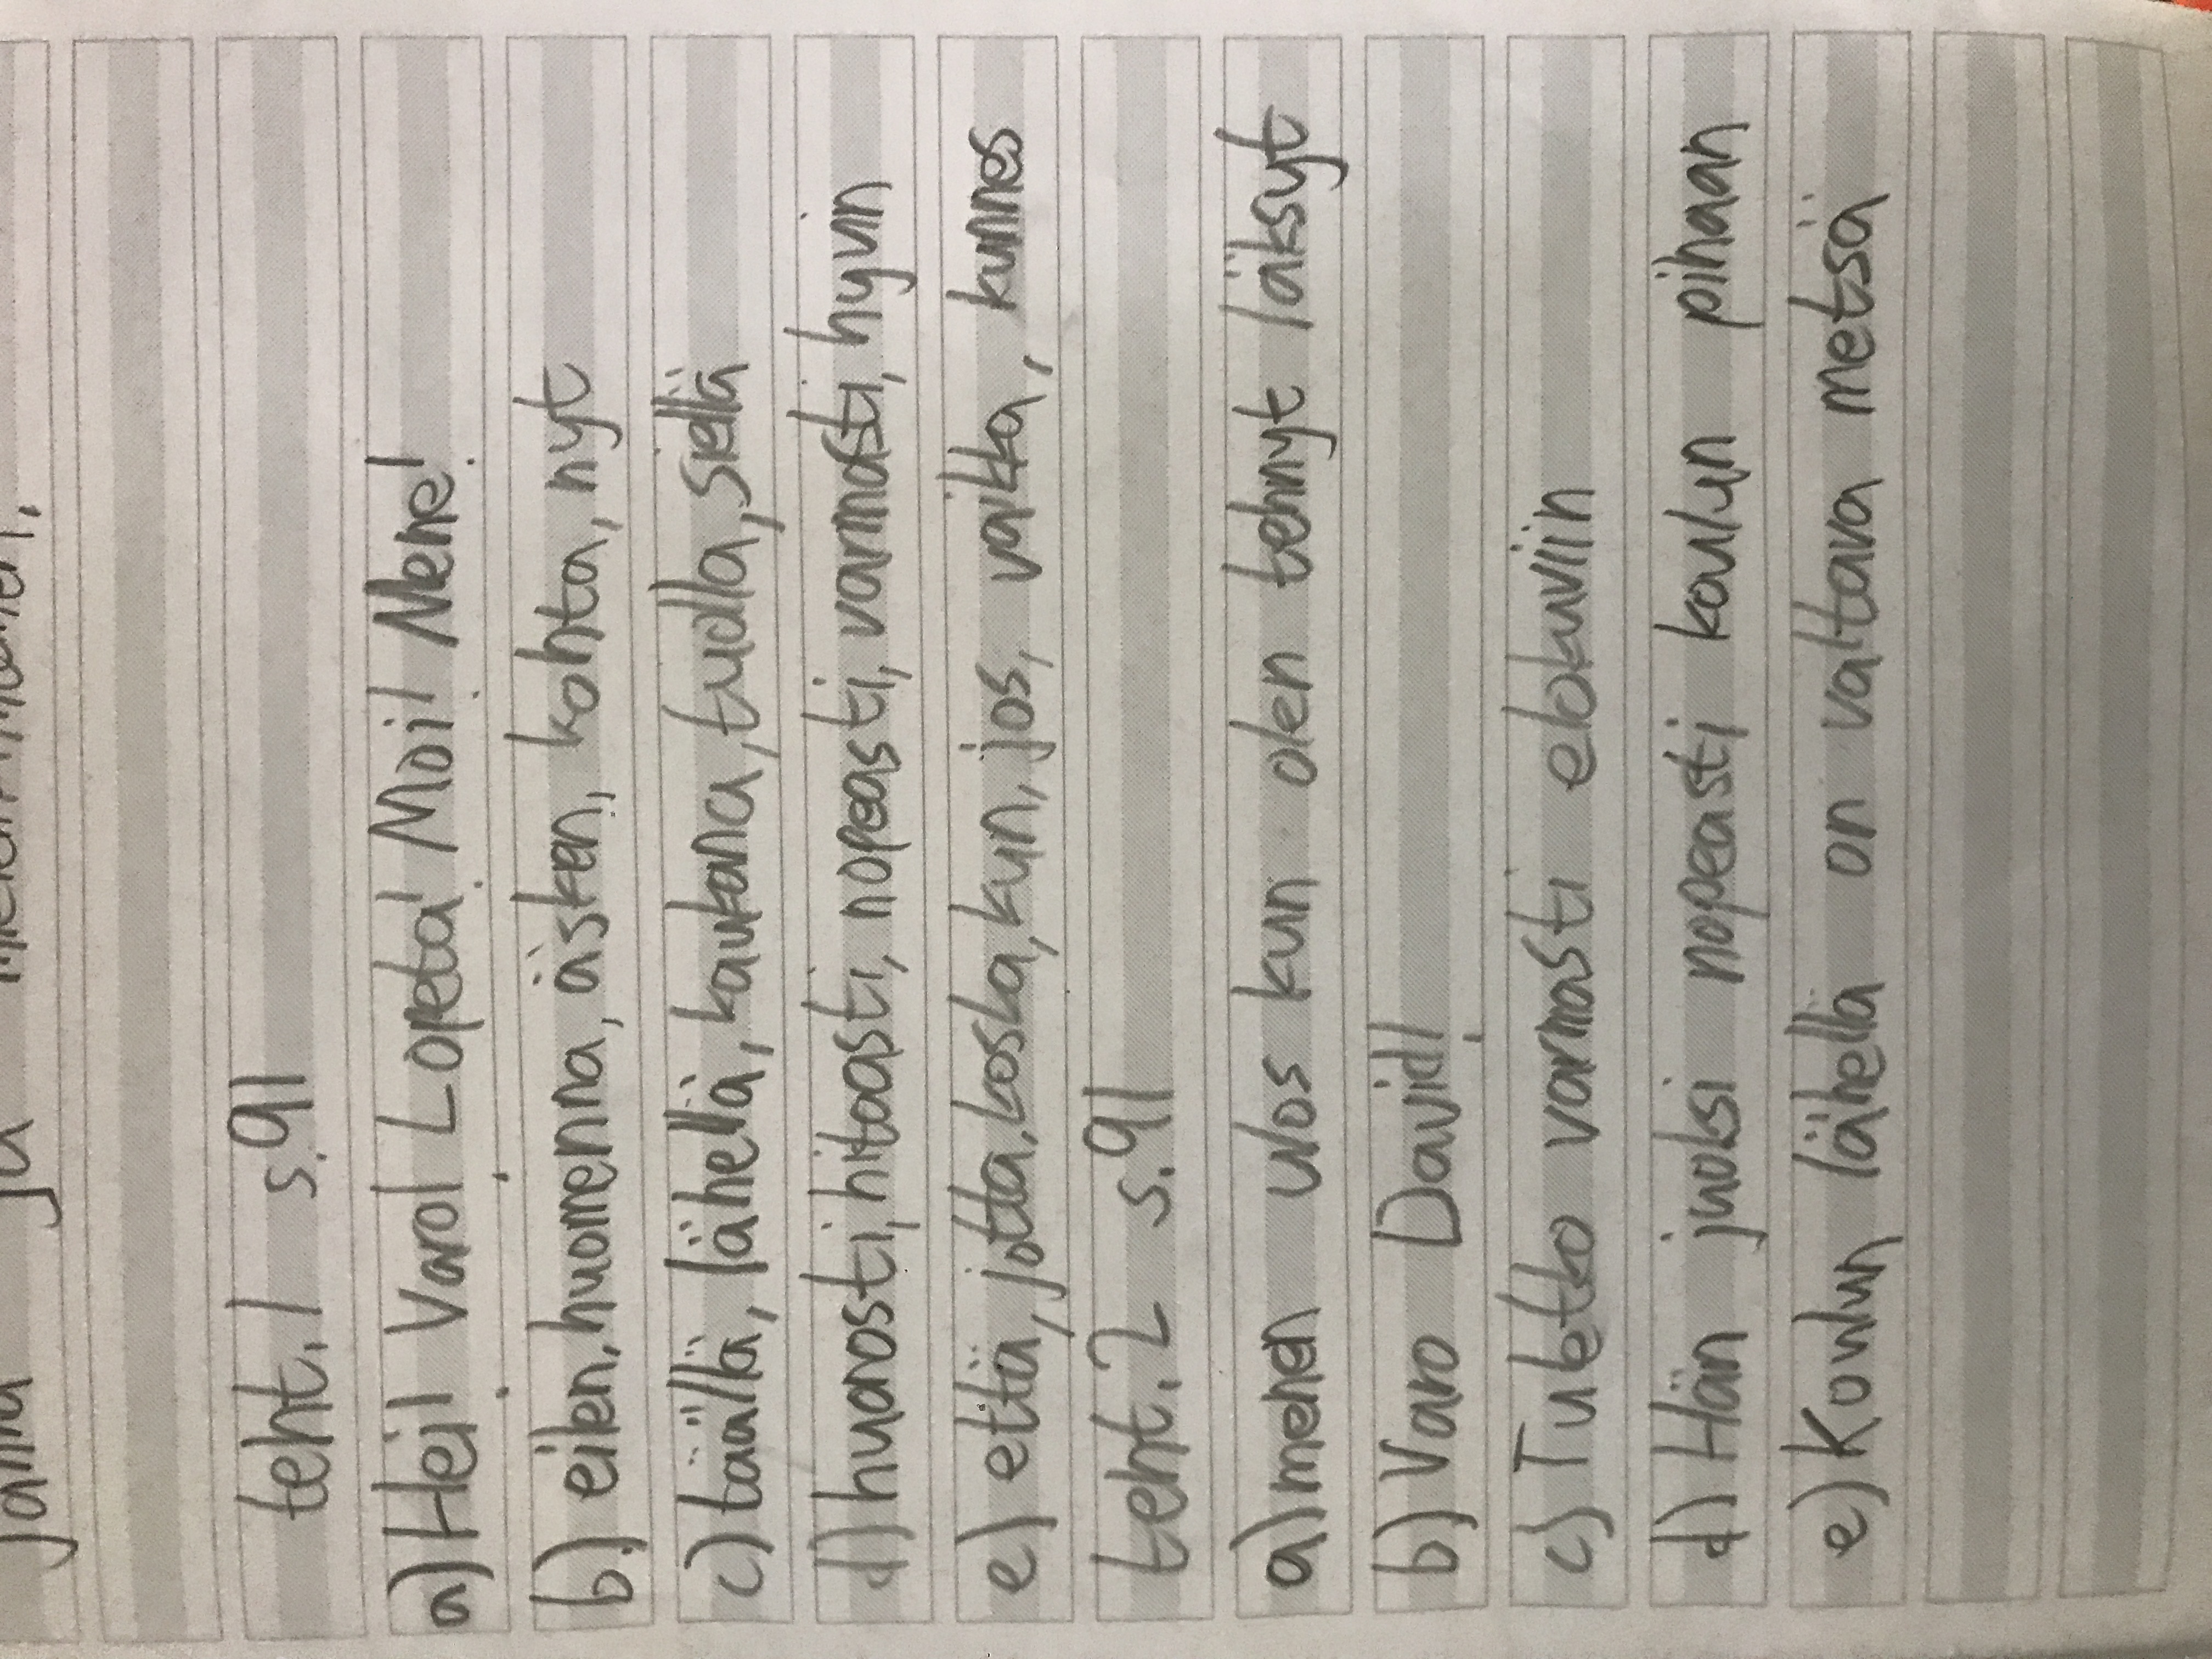 teht. 1 s.91
a) Hei! Varo! Lopeta! Moi! Mene!
b) eilen, huomenna, äsken, kohta, nyt
c) täällä, lähellä, kaukana, tuolla, siellä
d) huonosti, hitaasti, nopeasti, varmasti, hyvin
e) että, jotta, koska, kun, jos, vaikka, kunnes
teht. 2 s.91
a) menen ulos kun olen tehnyt läksyt
b) Varo David!
c) Tuletko varmasti elokuviin
d) Hän juoksi nopeasti koulun pihaan
e) Koulun lähellä on valtava metsä